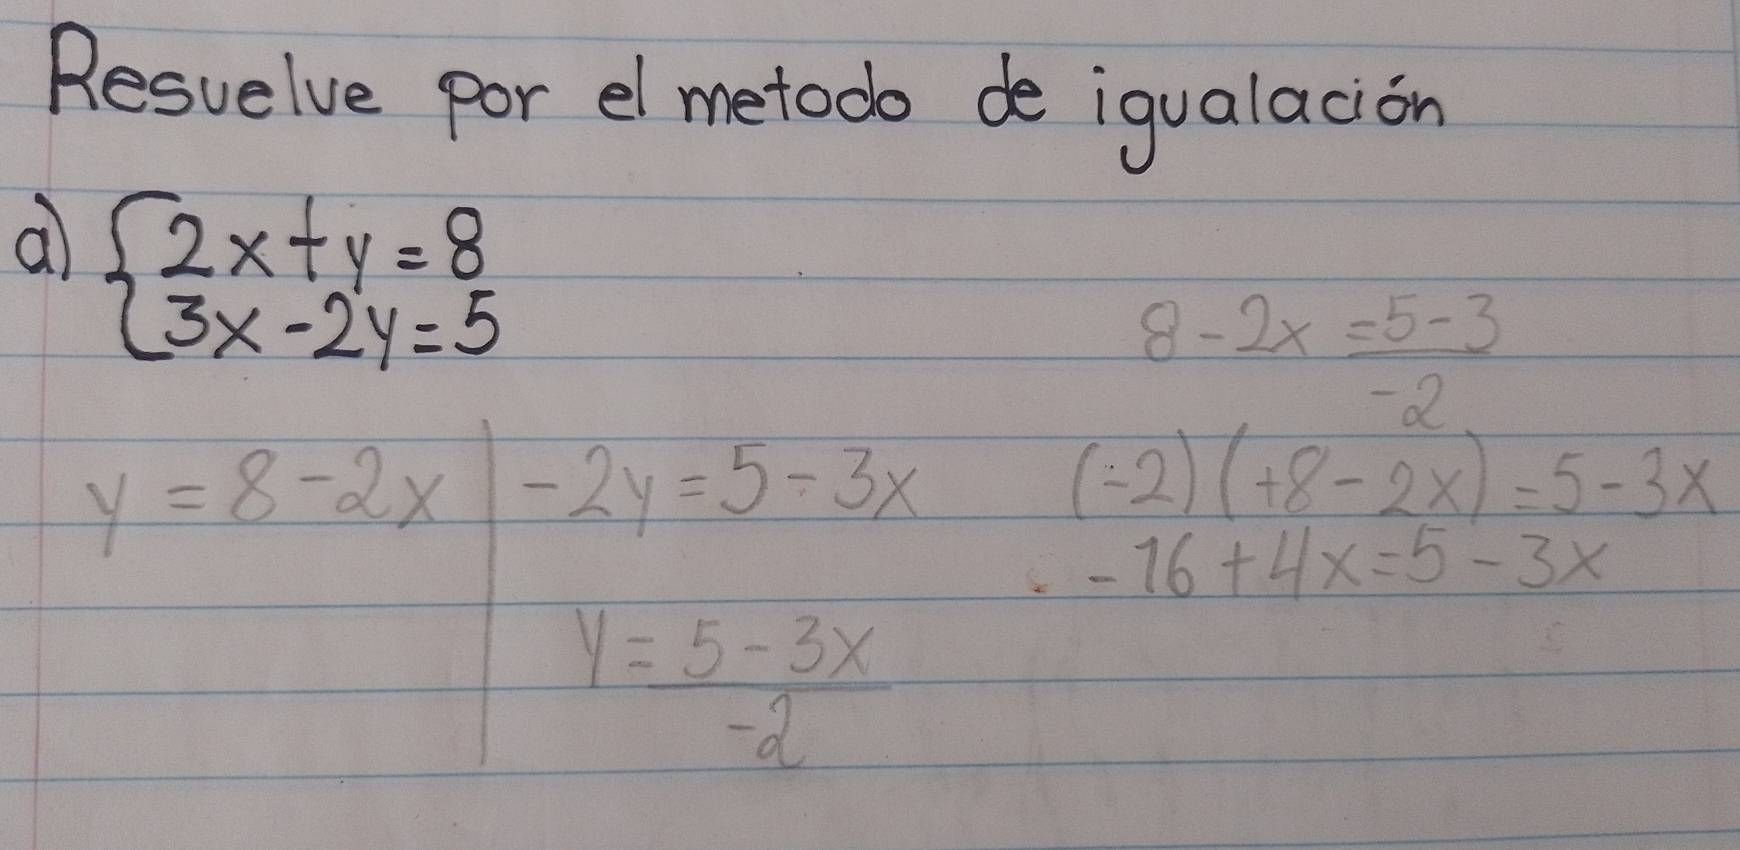 Resuelve por el metodo de igualación
a) { 2x + y = 8
3x - 2y = 5
y = 8 - 2x
-2y = 5 - 3x
y = 5 - 3x
-2
8 - 2x = 5 - 3
-2
(-2)(+8 - 2x) = 5 - 3x
-16 + 4x = 5 - 3x